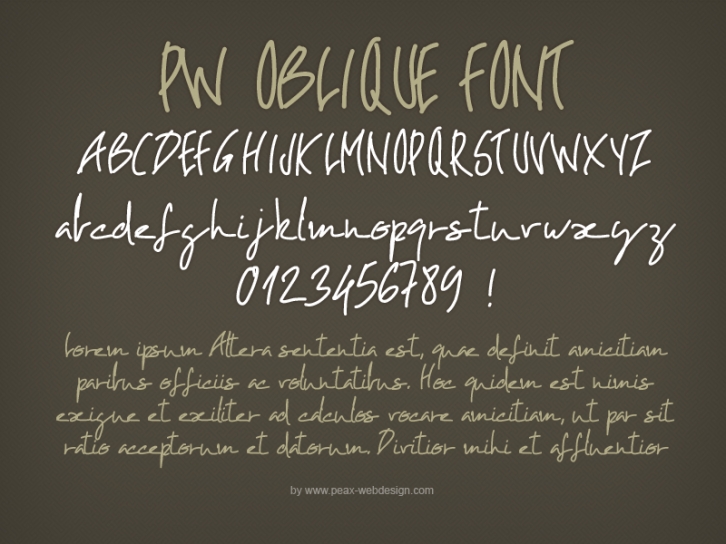 PW OBLIQUE FONT
ABCDEFGHIJKLMNOPQRSTUVWXYZ
abcdefghijklmnopqrstuvwxyz
0123456789 !
lorem ipsum Altera sententia est, quae definit amicitiam
paribus officiis ac voluntatibus. Hoc quidem est nimis
exigue et exiliter ad calculos vocare amicitiam, ut par sit
ratio acceptorum et datorum. Divitior mihi et affluentior
by www.peax-webdesign.com